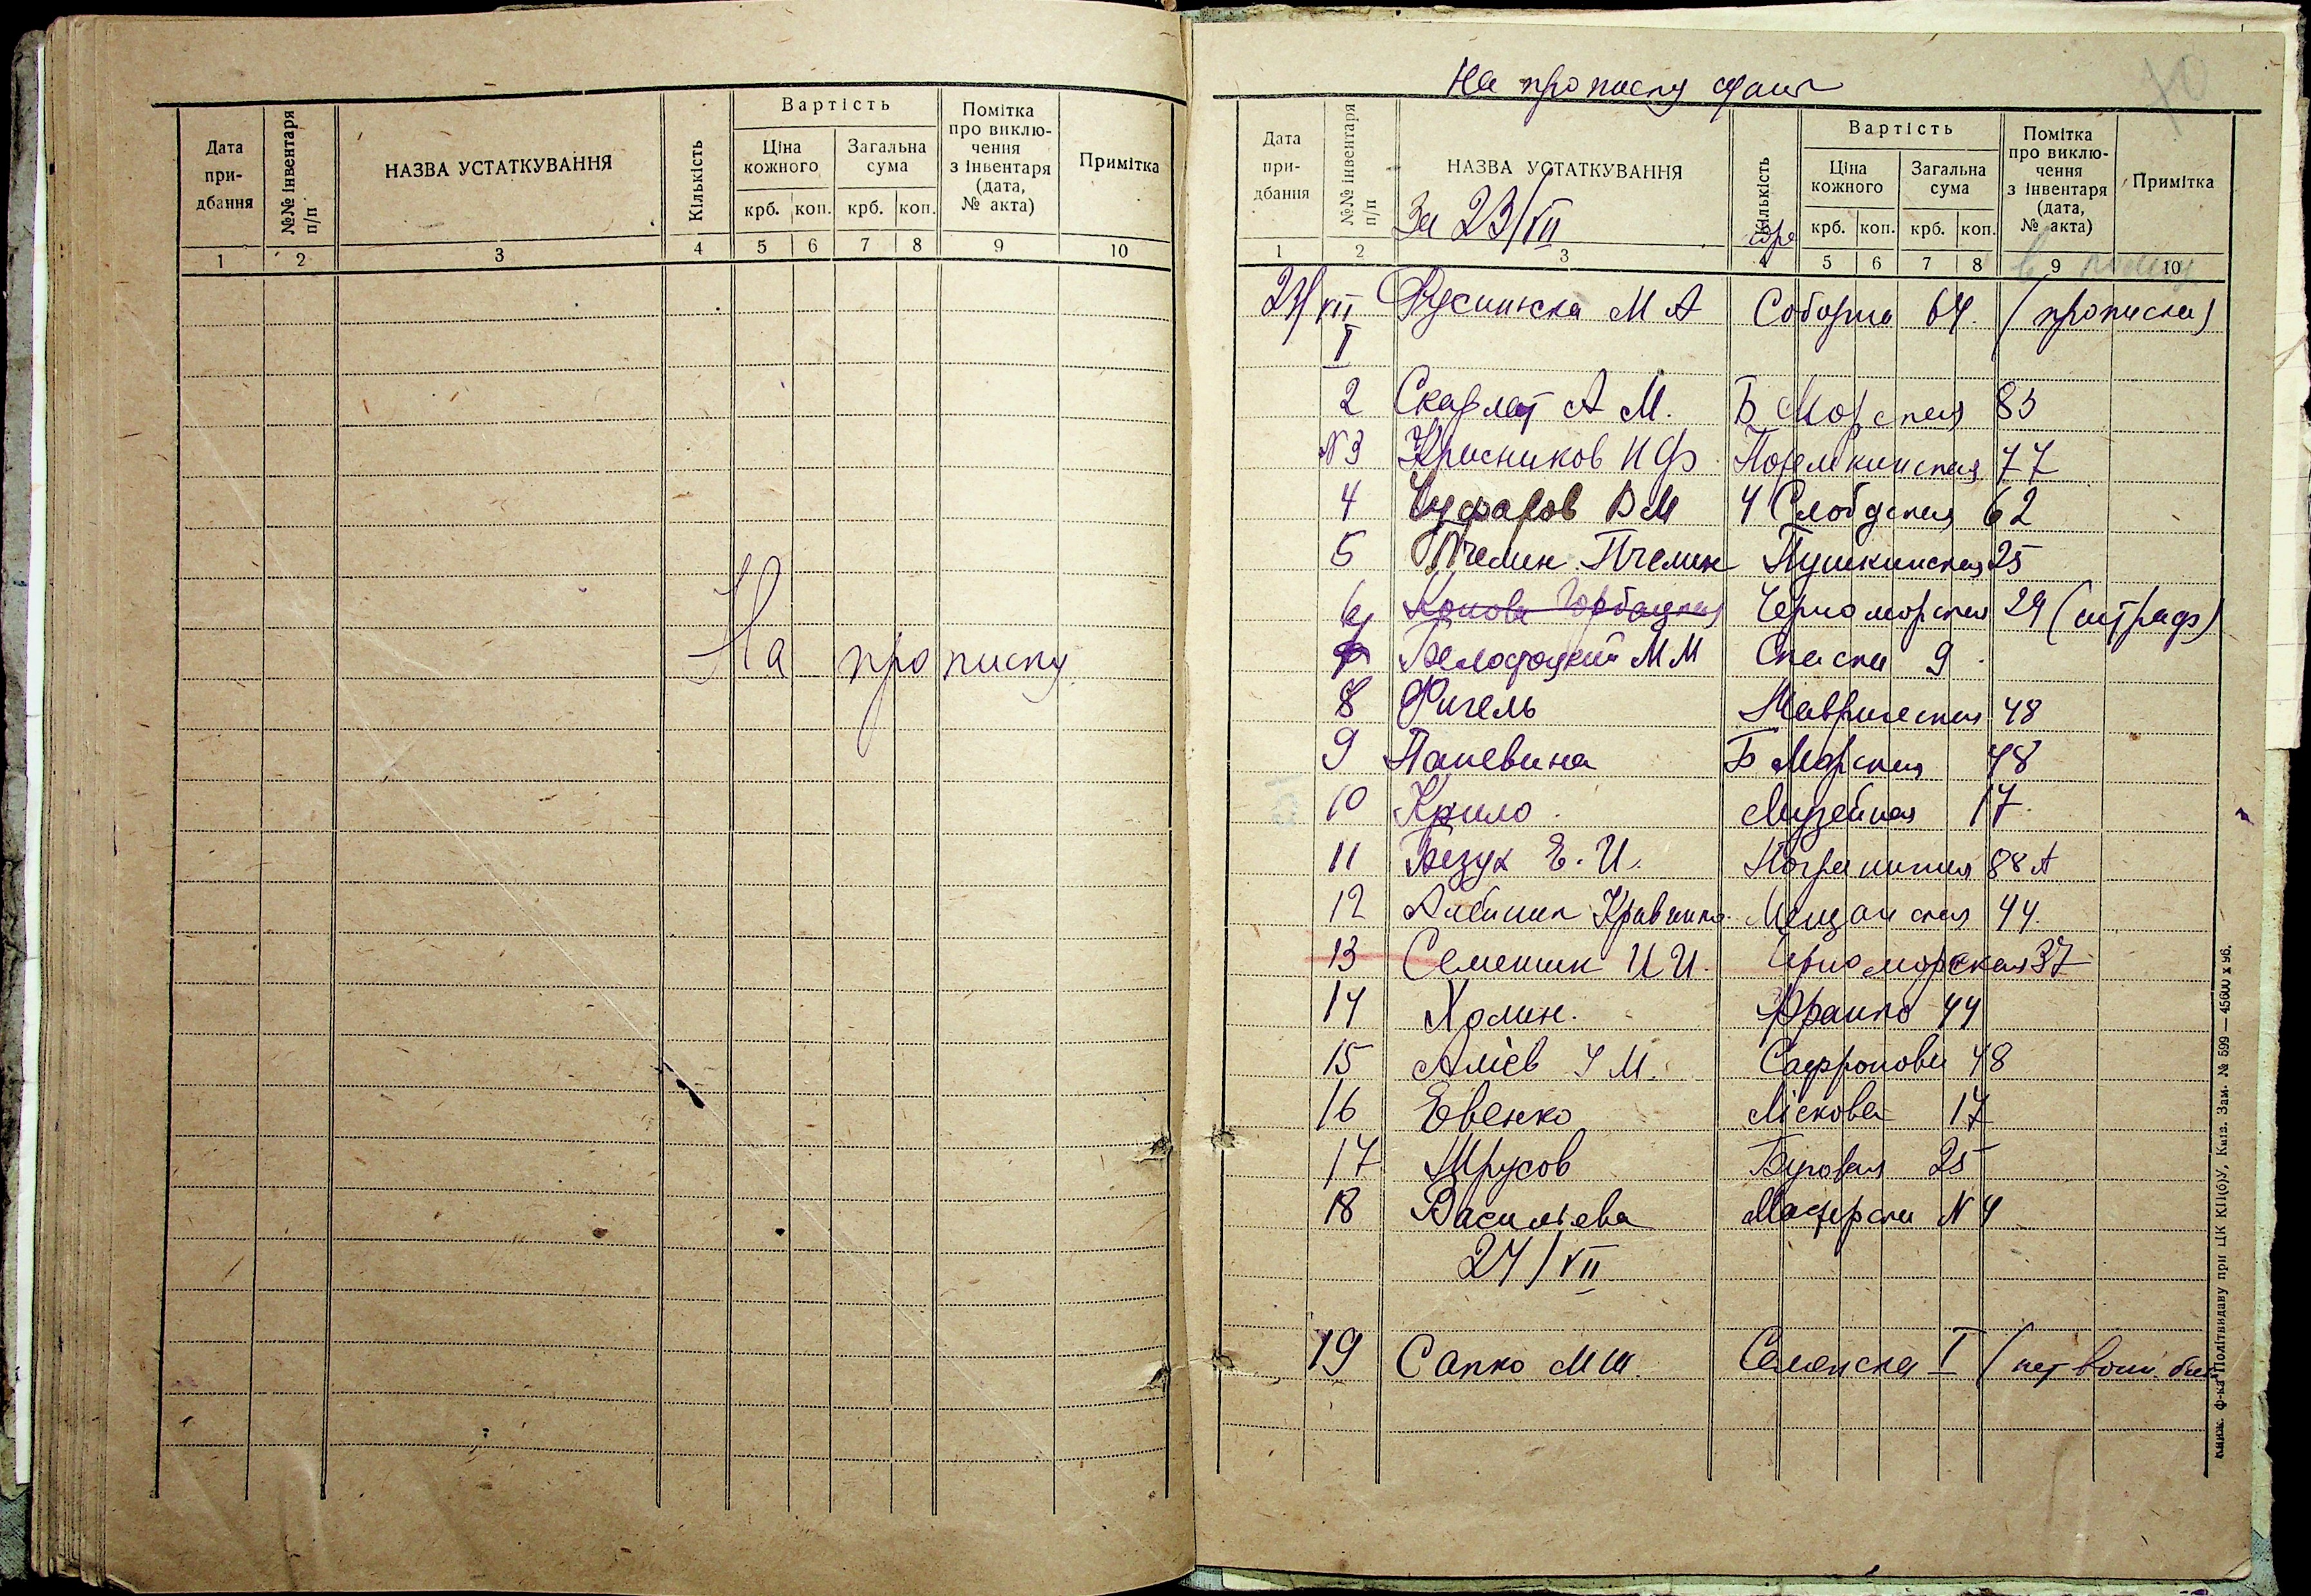 Дата при-дбання
№№ інвентаря п/п
НАЗВА УСТАТКУВАННЯ
Кількість
Вартість
Ціна кожного
Загальна сума
крб. коп. крб. коп.
Помітка про виклю-чення з інвентаря (дата, № акта)
Примітка
1 2 3 4 5 6 7 8 9 10
На прописку
На прописку
70
Дата при-дбання
№№ інвентаря п/п
НАЗВА УСТАТКУВАННЯ
За 23/VII
Кількість
Вартість
Ціна кожного
Загальна сума
крб. коп. крб. коп.
Помітка про виклю-чення з інвентаря (дата, № акта)
Примітка
1 2 3 4 5 6 7 8 9 10
24/VII М А Соборна 64. (прописка)
I
2 Скарлат А М. Б Морская 83
№3 Красников И Ф Потемкинская 77
4 Чуфаров В М 4 Слободская 62
5 Пчелин Пчелин Пушкинская 25
6 Горбацкая Черноморская 29 (штраф)
7 Белоцоцкий М М Спаска 9
8 Фигель Таврическая 48
9 Папевина Б Морская 48
10 Крило Музейная 17.
11 Безух Е. И. Погранична 88 А
12 Кравченко Мещанская 44.
13 Семенюк И И. Черноморская 37
14 Холин. Франко 44
15 Алієв У М. Сафронова 48
16 Евенко Лiскова 17
17 Мрусов Буровая 25
18 Василiева № 4
24/VII
19 Сапко М Селянска I (нет воин. бил
книж. ф-ка Політвидаву при ЦК КП(б)У, Київ. Зам. № 599 — 45600 х 96.